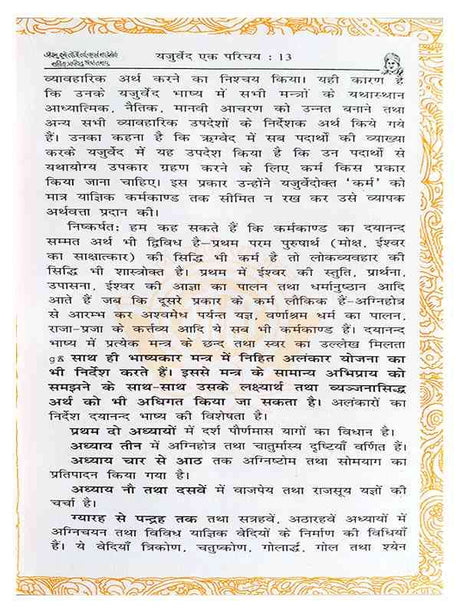 यजुर्वेद एक परिचय : 13
व्यावहारिक अर्थ करने का निश्चय किया। यही कारण है
कि उनके यजुर्वेद भाष्य में सभी मन्त्रों के यथास्थान
आध्यात्मिक, नैतिक, मानवी आचरण को उन्नत बनाने तथा
अन्य सभी व्यावहारिक उपदेशों के निर्देशक अर्थ किये गये
हैं। उनका कहना है कि ऋग्वेद में सब पदार्थों की व्याख्या
करके यजुर्वेद में यह उपदेश किया है कि उन पदार्थों से
यथायोग्य उपकार ग्रहण करने के लिए कर्म किस प्रकार
किया जाना चाहिए। इस प्रकार उन्होंने यजुर्वेदोक्त 'कर्म' को
मात्र याज्ञिक कर्मकाण्ड तक सीमित न रख कर उसे व्यापक
अर्थवत्ता प्रदान की।
निष्कर्षतः हम कह सकते हैं कि कर्मकाण्ड का दयानन्द
सम्मत अर्थ भी द्विविध है—प्रथम परम पुरुषार्थ (मोक्ष, ईश्वर
का साक्षात्कार) की सिद्धि भी कर्म है तो लोकव्यवहार की
सिद्धि भी शास्त्रोक्त है। प्रथम में ईश्वर की स्तुति, प्रार्थना,
उपासना, ईश्वर की आज्ञा का पालन तथा धर्मानुष्ठान आदि
आते हैं जब कि दूसरे प्रकार के कर्म लौकिक हैं—अग्निहोत्र
से आरम्भ कर अश्वमेध पर्यन्त यज्ञ, वर्णाश्रम धर्म का पालन,
राजा-प्रजा के कर्त्तव्य आदि ये सब भी कर्मकाण्ड हैं। दयानन्द
भाष्य में प्रत्येक मन्त्र के छन्द तथा स्वर का उल्लेख मिलता
gS साथ ही भाष्यकार मन्त्र में निहित अलंकार योजना का
भी निर्देश करते हैं। इससे मन्त्र के सामान्य अभिप्राय को
समझने के साथ-साथ उसके लक्ष्यार्थ तथा व्यञ्जनासिद्ध
अर्थ को भी अधिगत किया जा सकता है। अलंकारों का
निर्देश दयानन्द भाष्य की विशेषता है।
प्रथम दो अध्यायों में दर्श पौर्णमास यागों का विधान है।
अध्याय तीन में अग्निहोत्र तथा चातुर्मास्य दृष्टियाँ वर्णित हैं।
अध्याय चार से आठ तक अग्निष्टोम तथा सोमयाग का
प्रतिपादन किया गया है।
अध्याय नौ तथा दसवें में वाजपेय तथा राजसूय यज्ञों की
चर्चा है।
ग्यारह से पन्द्रह तक तथा सत्रहवें, अठारहवें अध्यायों में
अग्निचयन तथा विविध याज्ञिक वेदियों के निर्माण की विधियाँ
हैं। ये वेदियाँ त्रिकोण, चतुष्कोण, गोलार्द्ध, गोल तथा श्येन